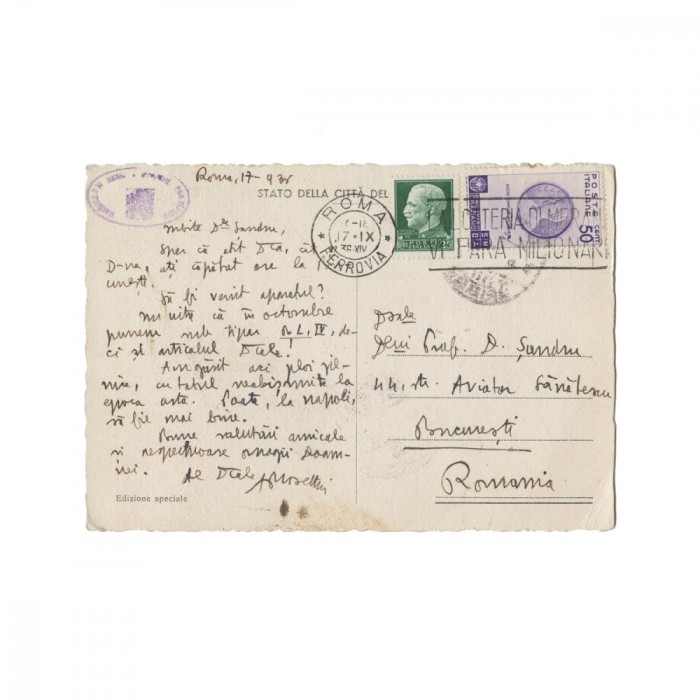 Roma, 17-936
STATO DELLA CITTÀ DEL
ROMA
17.IX
36.XIV
FERROVIA
LOTTERIA DI MER
VI FARÀ MILIONAR
POSTE
ITALIANE
CENT. 50
Iubite Dle Șandru,
Sper că atît Dta, cât
D-na, ați căpătat ore la
cunești.
Să fi venit aparatul?
Nu uita că în octombre
punem sub tipar B.L. IV, de-
ci și articolul Dtale!
Am găsit aci ploi zil-
nice, cu totul neobișnuite la
epoca asta. Poate, la Napoli,
să fie mai bine.
Bune salutări amicale
și respectuoase omagii Doam-
nei.
Al Dtale ARosetti
Edizione speciale
Dsale
Dlui Prof. D. Șandru
44, str. Aviator Sănătescu
București
Romania